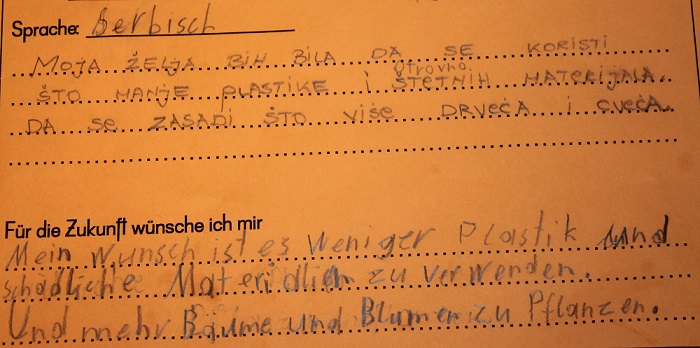 Sprache: Serbisch
MOJA ŽELJA BIH BILA DA SE KORISTI
otrovno
ŠTO MANJE PLASTIKE i ŠTETNIH MATERIJALA.
DA SE ZASADI ŠTO više DRVEĆA i CVEĆA.
Für die Zukunft wünsche ich mir
Mein Wunsch ist es weniger Plastik und
schädliche Materialien zu verwenden.
Und mehr Bäume und Blumen zu Pflanzen.